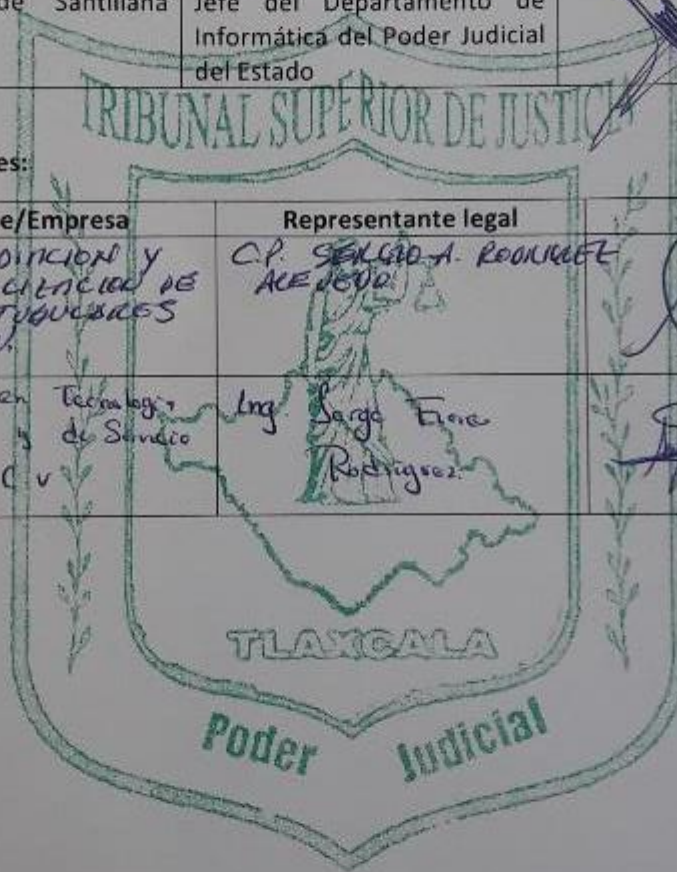 de Santillana
Jefe del Departamento de
Informática del Poder Judicial
del Estado
TRIBUNAL SUPERIOR DE JUSTICIA
es:
e/Empresa
Representante legal
Y
C.P. SERGIO A. RODRIGUEZ
DE
ACEVEDO
en Tecnologia
y de Servicio
C V
Ing. Jorge
Rodriguez
TLAXCALA
Poder Judicial